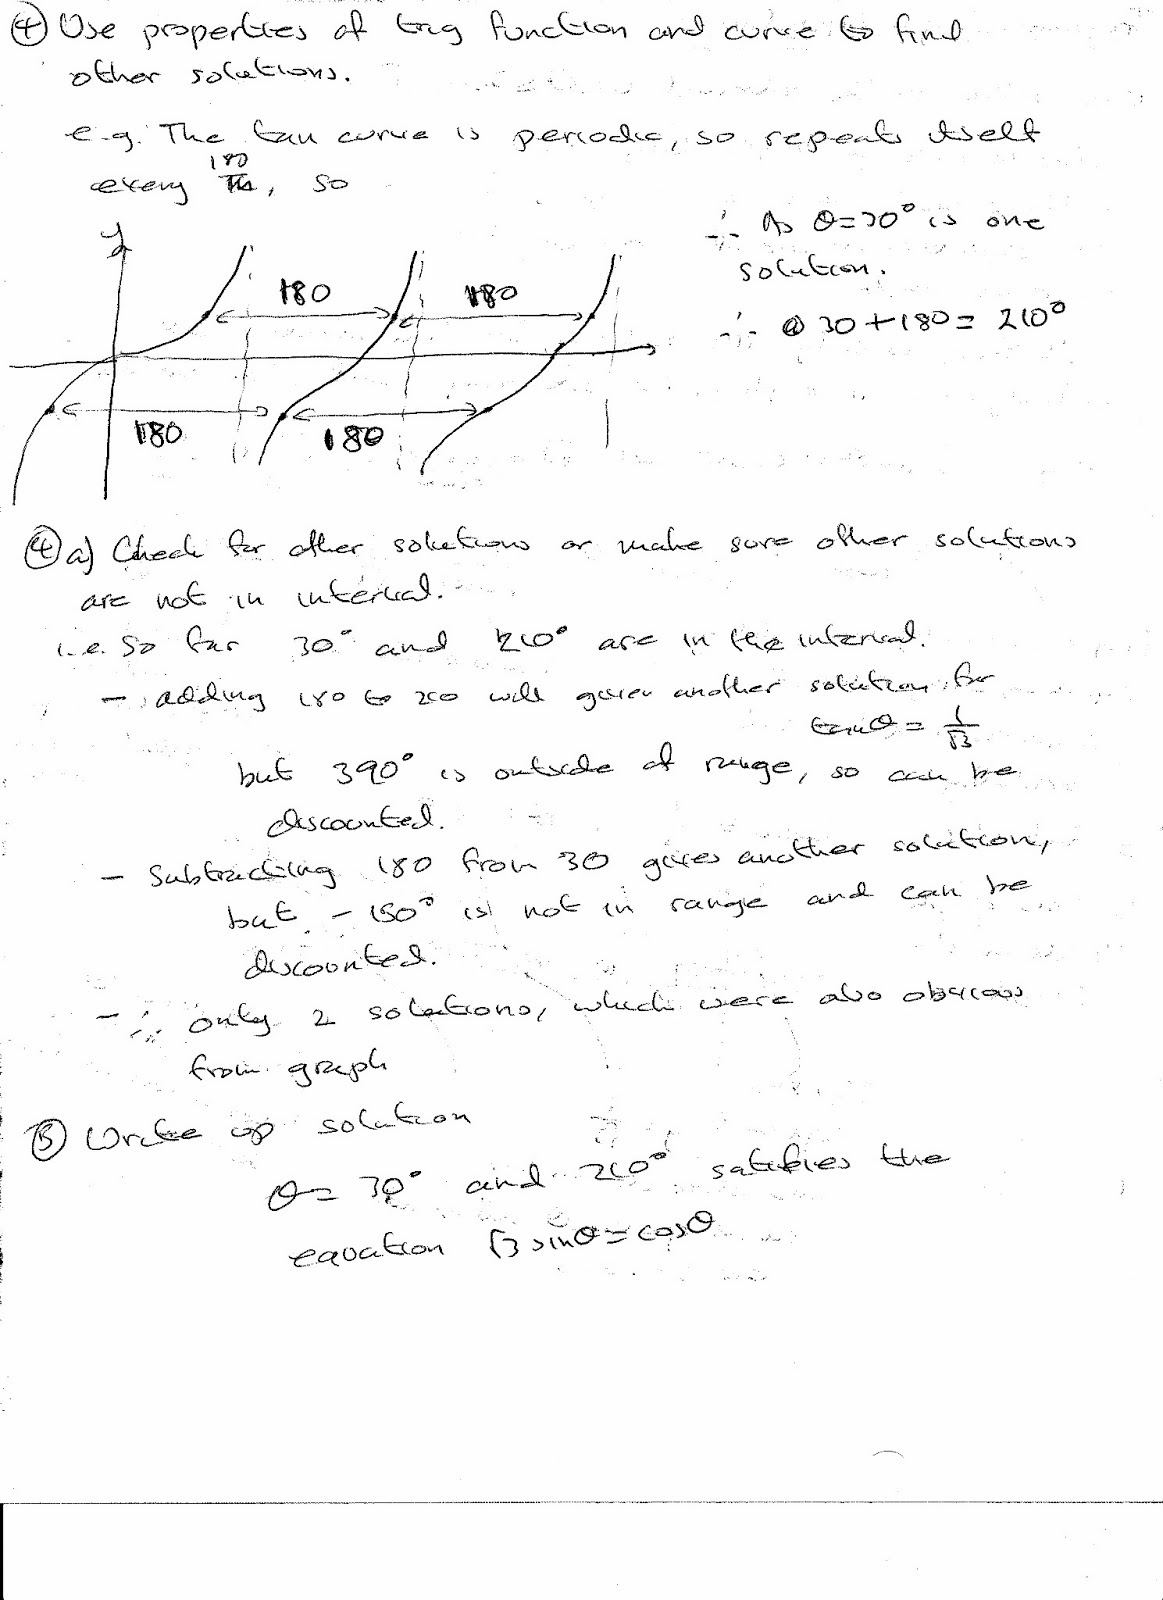 ④ Use properties of trig function and curve to find
other solutions.
e.g. The tan curve is periodic, so repeats itself
180
every, so
y
180
180
180
180
∴ As θ=30° is one
solution.
∴ 30+180= 210°
④ a) Check for other solutions or make sure other solutions
are not in interval.
i.e. So far 30° and 210° are in the interval.
- adding 180 to 210 will given another solution for
tanθ = 1/√3
but 390° is outside of range, so can be
discounted.
- Subtracting 180 from 30 gives another solution,
but -150° is not in range and can be
discounted.
- ∴ only 2 solutions, which were also obvious
from graph
⑤ Write up solution
θ= 30° and 210° satisfies the
equation √3 sinθ=cosθ